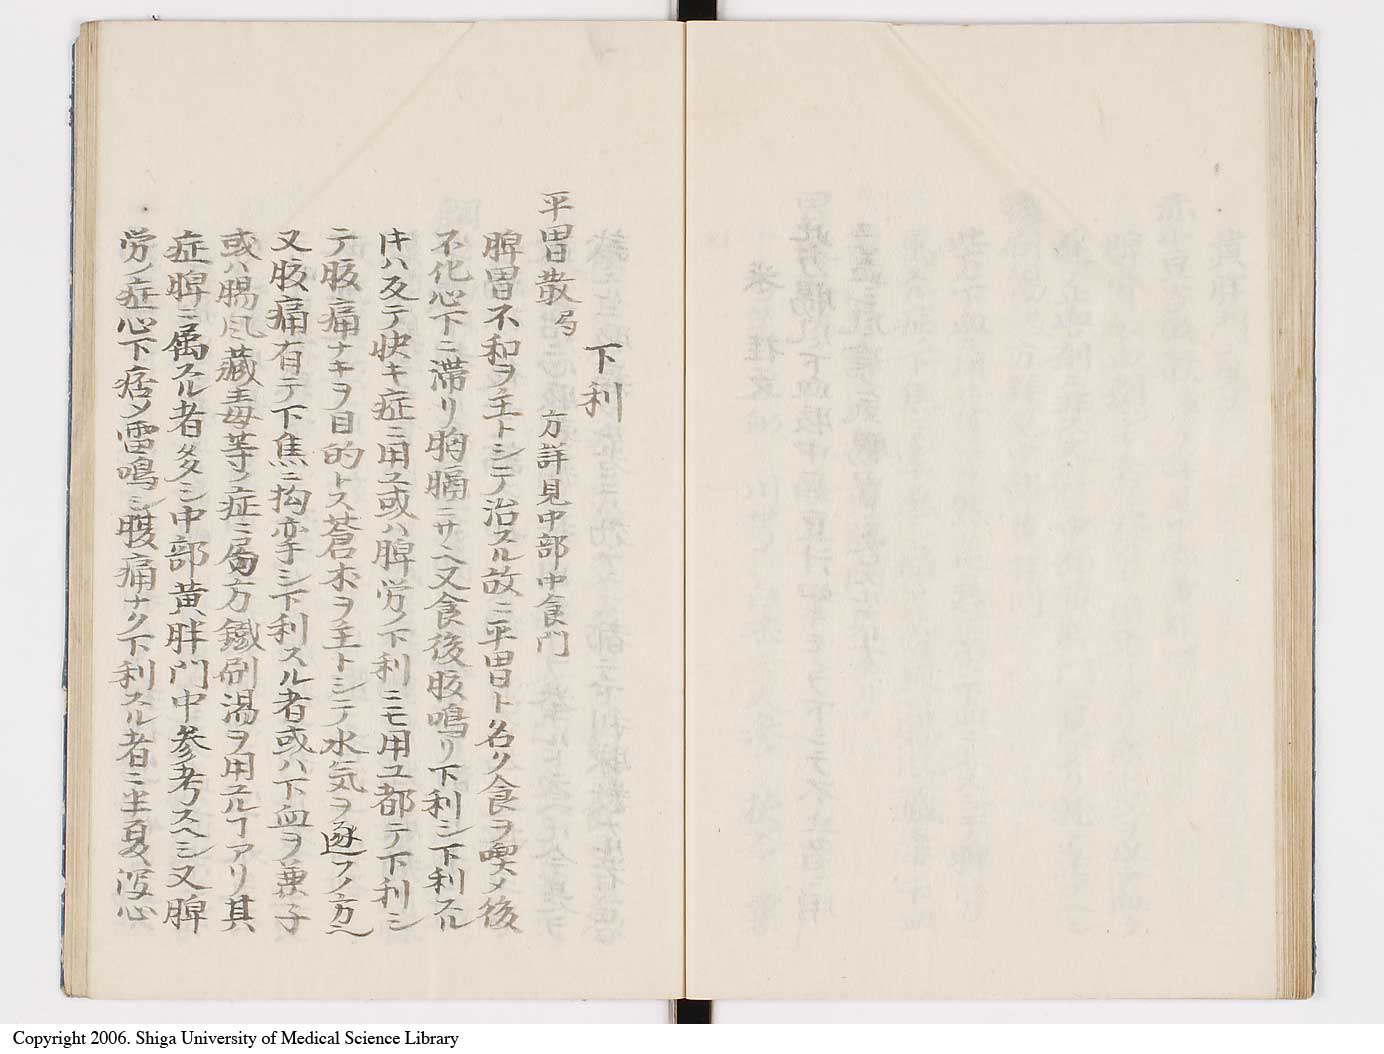 下利
平胃散局　方詳見中部中食門
脾胃不和ヲ主トシテ治スル故ニ平胃ト名ク食ヲ喫メ後
不化心下ニ滞リ胸膈ニサヘ又食後腹鳴リ下利シ下利スル
キハ反テ快キ症ニ用ユ或ハ脾労ノ下利ニモ用ユ都テ下利シ
テ腹痛ナキヲ目的トス蒼朮ヲ主トシテ水気ヲ逐フノ方ヘ
又腹痛有テ下焦ニ拘挛シ下利スル者或ハ下血ヲ兼子
或ハ腸風藏毒等ノ症ニ局方鐵刷湯ヲ用ユルヿアリ其
症脾ニ属スル者多シ中部黄胖門中参考スヘシ又脾
労ノ症心下痞メ雷鳴シ腹痛ナク下利スル者ニ半夏泻心
Copyright 2006. Shiga University of Medical Science Library